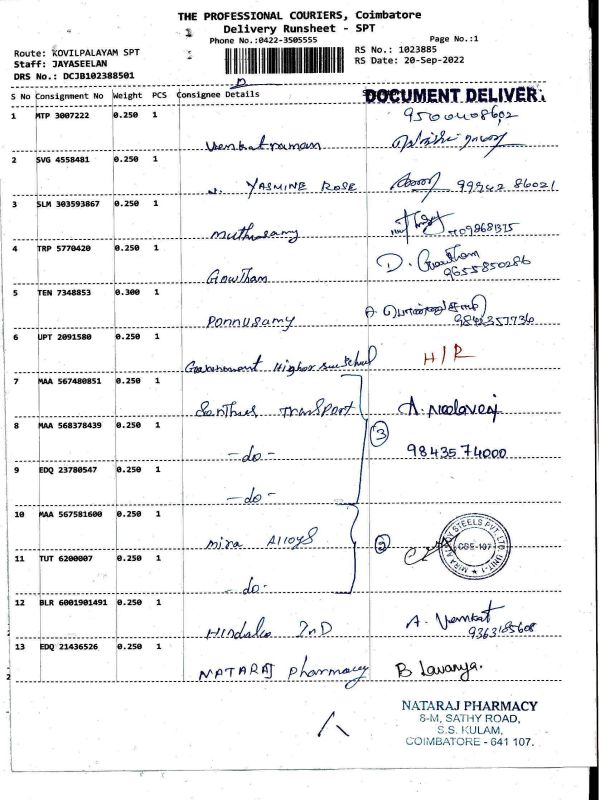 THE PROFESSIONAL COURIERS, Coimbatore
Delivery Runsheet - SPT
Phone No.:0422-3505555
Page No.:1
Route: KOVILPALAYAM SPT
RS No.: 1023885
Staff: JAYASEELAN
RS Date: 20-Sep-2022
DRS No.: DCJB102388501
S No Consignment No Weight PCS Consignee Details
DOCUMENT DELIVER.
1 MTP 3007222 0.250 1
Venkatraman
2 SVG 4558481 0.250 1
YASMINE ROSE 99942 86021
3 SLM 303593867 0.250 1
Muthusamy
4 TRP 5770420 0.250 1
Gowtham D. Gowtham
9655850286
5 TEN 7348853 0.300 1
Ponnusamy
9842357736
6 UPT 2091580 0.250 1
Government Higher H/R
7 MAA 567480851 0.250 1
Transport
8 MAA 568378439 0.250 1
3
-do- 9843574000
9 EDQ 23780547 0.250 1
-do-
10 MAA 567581600 0.250 1
Mira Alloys
2
MIRA ALLOY STEELS PVT. LTD. UNIT-1
CBE-107
11 TUT 6200007 0.250 1
-do-
12 BLR 6001901491 0.250 1
Hindalco InD A. Venkat
9363185608
13 EDQ 21436526 0.250 1
NATARAJ Pharmacy B Lavanya.
NATARAJ PHARMACY
8-M, SATHY ROAD,
S.S. KULAM,
COIMBATORE - 641 107.